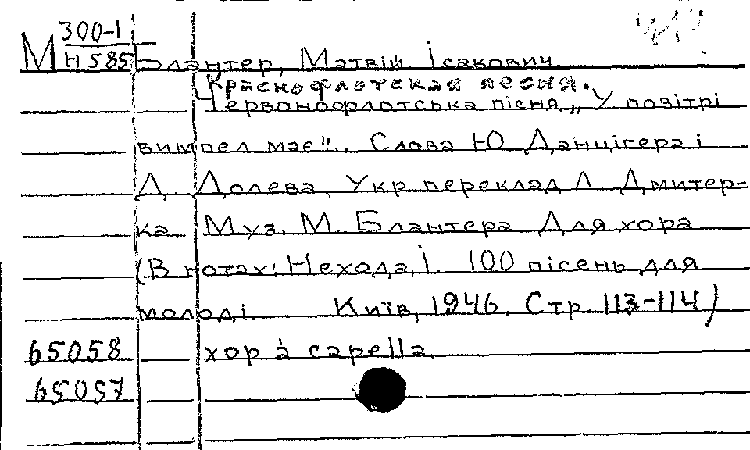 300-1
М Н585 Блантер, Матвій Ісакович
Краснофлотская песня.
Червонофлотська пісня „У повітрі
вимпел має". Слова Ю. Данцігера і
Д. Долева. Укр. переклад Л. Дмитер-
ка. Муз. М. Блантера. Для хора
(В нотах: Нехода, І. 100 пісень для
молоді. Київ, 1946. Стр. 113-114)
65058 хор à capella.
65057